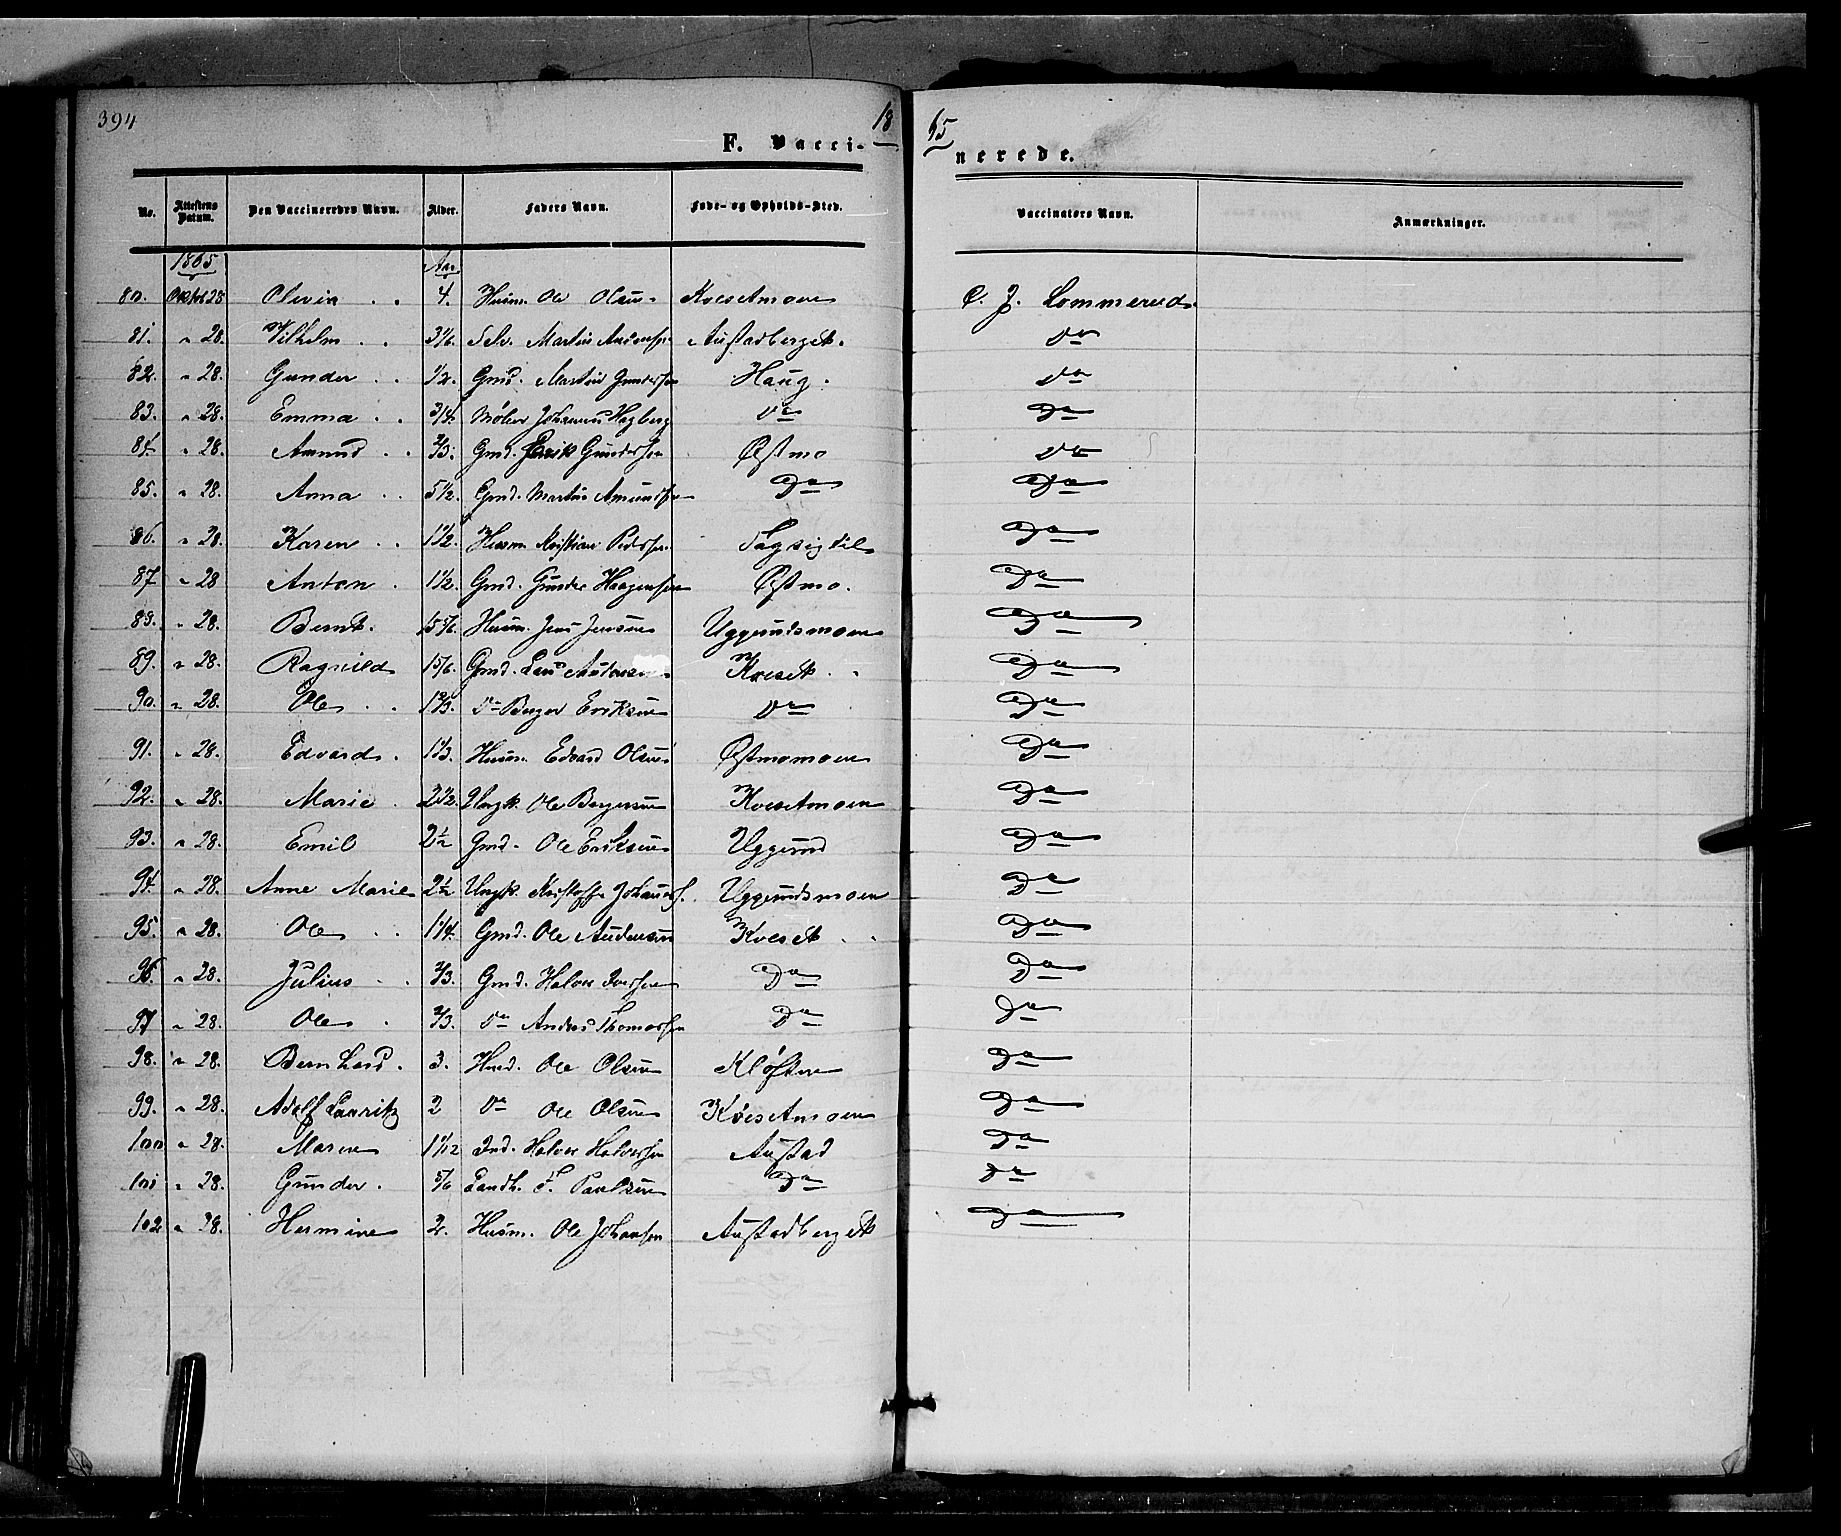 394 18 65
F. Vacci- nerede.
No. Attestens Datum. Den Vaccineredes Navn. Alder. Faders Navn. Føde- og Opholds-Sted. Vaccinators Navn. Anmærkninger.
1865 Aar
80. Oktbr 28 Olivia . . 4. Husm. Ole Olsen Kvesetmoen C. J. Lommerud
81. " 28. Vilhelm . . 3 1/6. Selv. Martin Andersen Austadberget. do
82. " 28. Gunder . . 1/2. Gmd. Martin Gundersen Haug. do
83. " 28. Emma . . 3/4. Møller Johannes Hagberg do do
84. " 28. Amund . . 2/3. Gmd. Erik Gundersen Østmo do
85. " 28. Anna . . 5 1/2. Gmd. Martin Amundsen Do Do
86. " 28. Karen . . 1 1/2. Husm. Kristian Pedersen Do
87 " 28 Anton . 1 1/2. Gmd. Gunder Haagensen Østmo. Do
88. " 28. Bernt. 15 5/6. Husm. Jens Jensen Uggerudsmoen Do
89. " 28. Ragnild 1 5/6. Gmd. Lars Kveset " Do
90. " 28. Ole . . 1 2/3. do Berger Eriksen do Do
91. " 28. Edvard . 1 1/3. Husm. Edvard Olsen Østmomoen Do
92. " 28. Marie . 2 1/2. Ungk. Ole Bergersen Kvesetmoen Do
93. " 28. Emil 2 1/2 Gmd. Ole Eriksen Uggerud Do
94. " 28. Anne Marie 2 1/2 Ungk. Kristoffer Johannes. Uggerudsmoen Do
95. " 28. Ole . . 1 1/4. Gmd. Ole Andersen Kveset " Do
96. " 28. Julius . . 2/3. Gmd. Halvor Iversen Do Do
97 " 28. Ole . 2/3. do Anders Thomassen Do Do
98. " 28. Bernhard . 3. Husm. Ole Olsen Kløften Do
99. " 28. Adolf Lauritz 2 do Ole Olsen Kvesetmoen Do
100 " 28. Maren 1 1/12 Ind. Halvor Halvorsen Austad Do
101 " 28. Gunder . 5/6 Landh. F. Paulsen Do Do
102 " 28. Hermine 2. Husm. Ole Johansen Austadberget Do